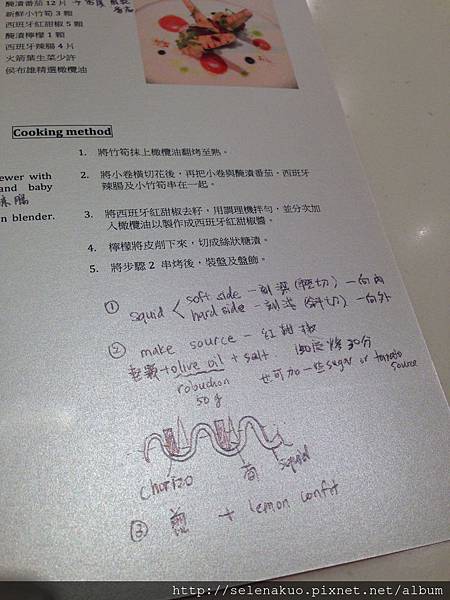 醃漬番茄 12 片
新鮮小竹筍 3 顆
西班牙紅甜椒 5 顆
醃漬檸檬 1 顆
西班牙辣腸 4 片
火箭葉生菜少許
侯布雄精選橄欖油
Cooking method
1. 將竹筍抹上橄欖油翻烤至熟。
ewer with
and baby
n blender.
2. 將小卷橫切花後，再把小卷與醃漬番茄、西班牙
辣腸及小竹筍串在一起。
3. 將西班牙紅甜椒去籽，用調理機拌勻，並分次加
入橄欖油以製作成西班牙紅甜椒醬。
4. 檸檬將皮削下來，切成絲狀糖漬。
5. 將步驟 2 串烤後，裝盤及盤飾。
① squid < soft side - 刻深 (輕切) - 向內
hard side - 刻淺 (斜切) - 向外
② make source - 紅甜椒
+ olive oil + salt 烤 30分
robuchon 也可加一些 sugar or tomato source
50 g
chorizo 筍 squid
③ + lemon confit
http://selenakuo.pixnet.net/album